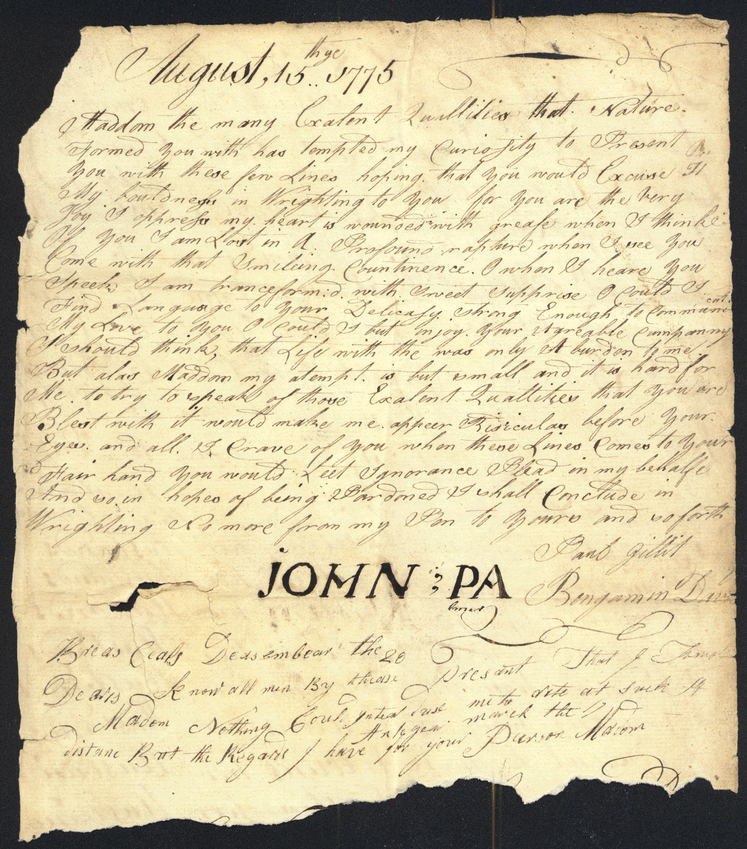 August, 15.. thye 1775
Maddom the many Exalent Quallities that Nature.
Formed You with has tempted my Curiosity to Present
You with these few Lines hoping that you would Excuse
My bouldness in Wrighting to You for you are the very
Joy I oppress my heart is wounded with greafe when I thinke
of you I am Lost in A Profound rapture when I see you
Come with that Smileing Countinence. O when I heare You
Speek I am tranceformd. with Sweet Supprise O Could I
Find a Language to Your Delicasy Strong Enough to Commane
My Love to You O Could I but injoy Your Agreable Companny
I should think, that Life with the was only A burdon to me
But alas Maddom my atempt. is but small and it is hard for
Me. to try to speak of those Exalent Quallities that You are
Blest with it would make me. appeer Risiculas before Your
Eyes. and all. I Crave of You when these Lines Comes to Your
Fair hand You would Leet Ignorance Plead in my behalfe
And so, in hopes of being Pardoned I shall Conclude in
Wrighting No more from my Pen to Yours and so forth
Paul Gillit
JOHN PA
Bengamin
Breas Ceass Deasembear the 20 Presant That J
Dears Know all men By these me to rite at such A
Madom Nothing Coud march the
distane But the Regard J have for your Person Madom